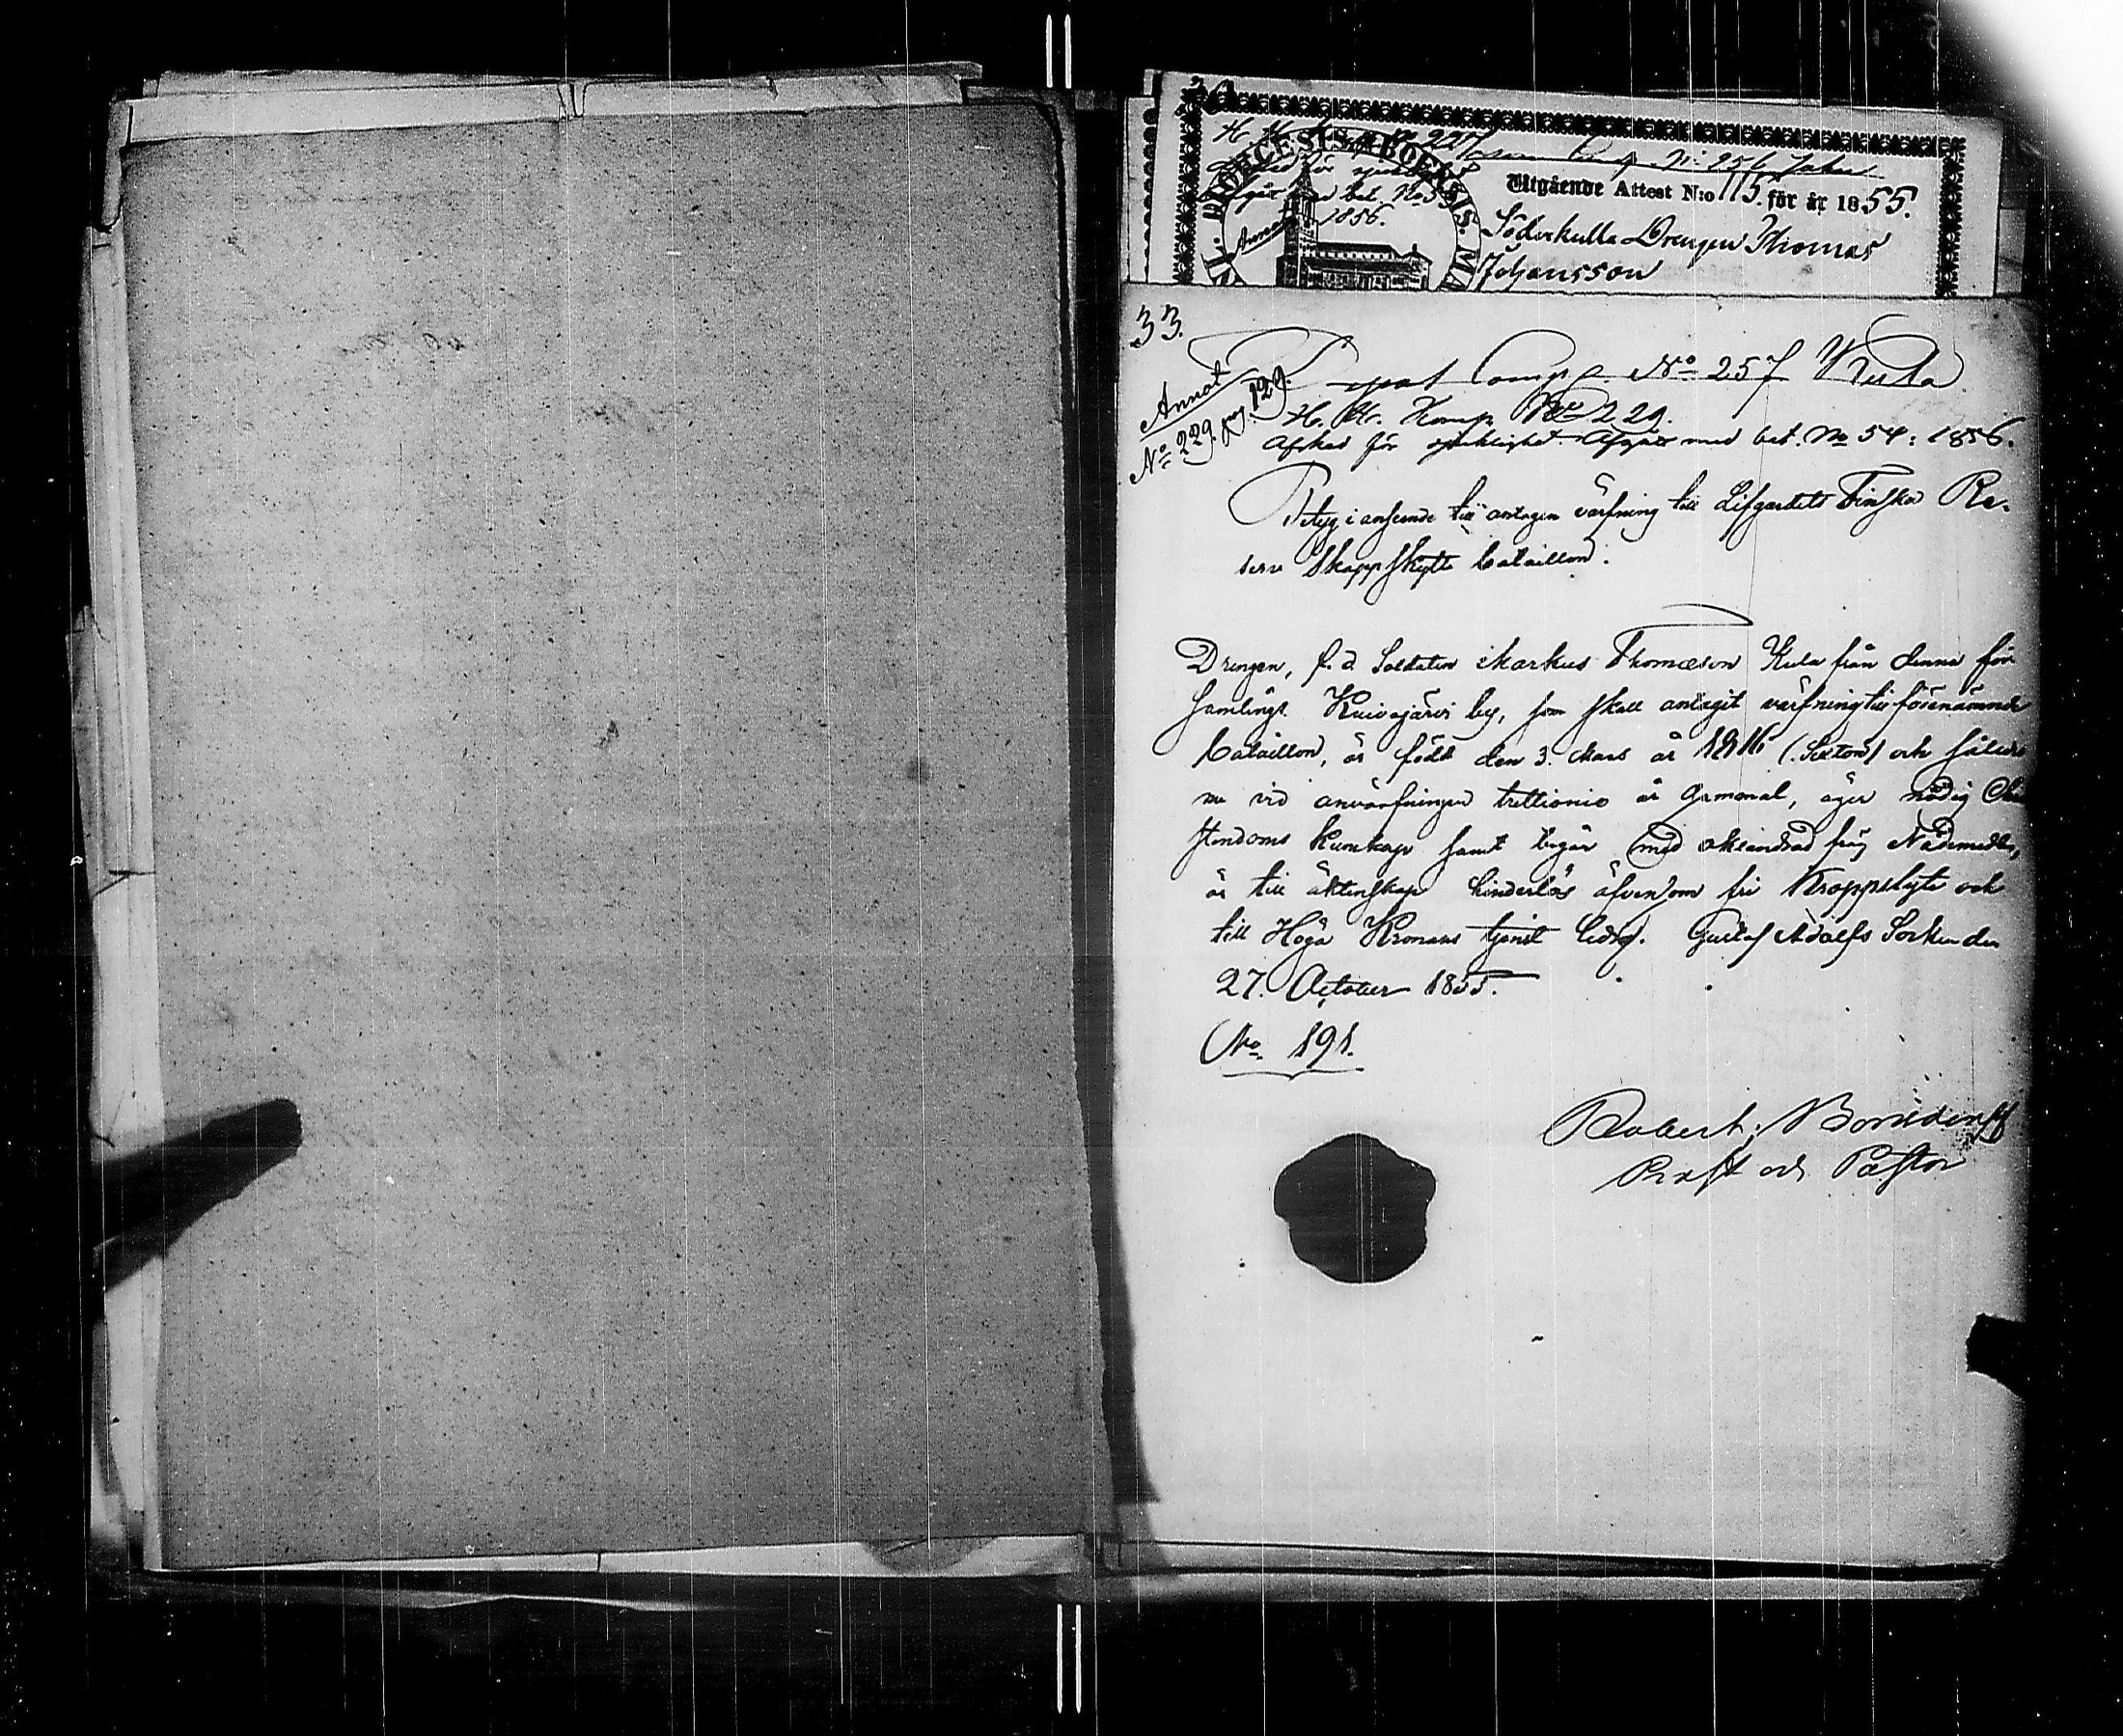 Utgående Attest N:o 115. för år 1855.
Söderkulla Drengen Thomas
Johansson
1856.
33.
Annot
No 229. pag. 129.
Comp. No 257 Kula
H. K. Komp. No 229.
Afsked för sjuklighet. Afgår med bet. No 54: 1856.
Betyg i anseende till antagen värfning till Lifgardets Finska Re-
serv Skarpskytte bataillon.
Drengen, f. d. Soldaten Markus Thomasson Kula från denna för
samlings Kuivajärvi by, som skall antagit värfning till förenämnde
bataillon, är född den 3. Mars år 1816 (Sexton) och således
nu vid anvärfningen trettionio år gammal, äger nödig Chri
stendoms kunskap samt begår med oklandrad fräg Nådemedlen,
är till äktenskap hinderlös äfvensom fri Kroppslyte och
till Höga Kronans tjenst ledig. Gustaf Adolfs Socken den
27. October 1855.
No. 191.
Robert Bonsdorff
Prost och Pastor